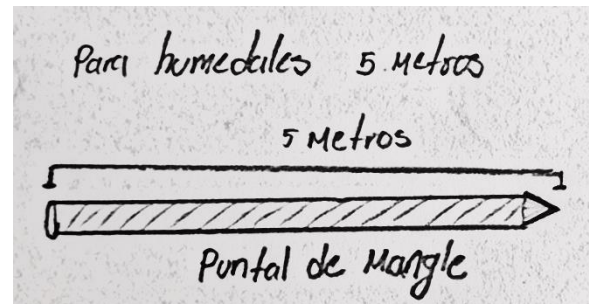 Para humedales 5 Metros
5 Metros
Puntal de Mangle